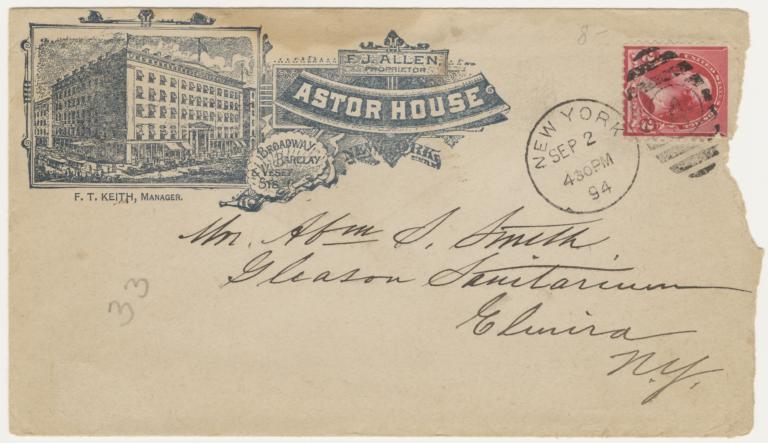 8-
F. J. ALLEN,
PROPRIETOR.
ASTOR HOUSE
NEW YORK
BROADWAY
BARCLAY
& VESEY
STS.
F. T. KEITH, MANAGER.
NEW YORK
SEP 2
430PM
94
Mr. Abm S. Smith
Gleason Sanitarium
Elmira
N.Y.
33